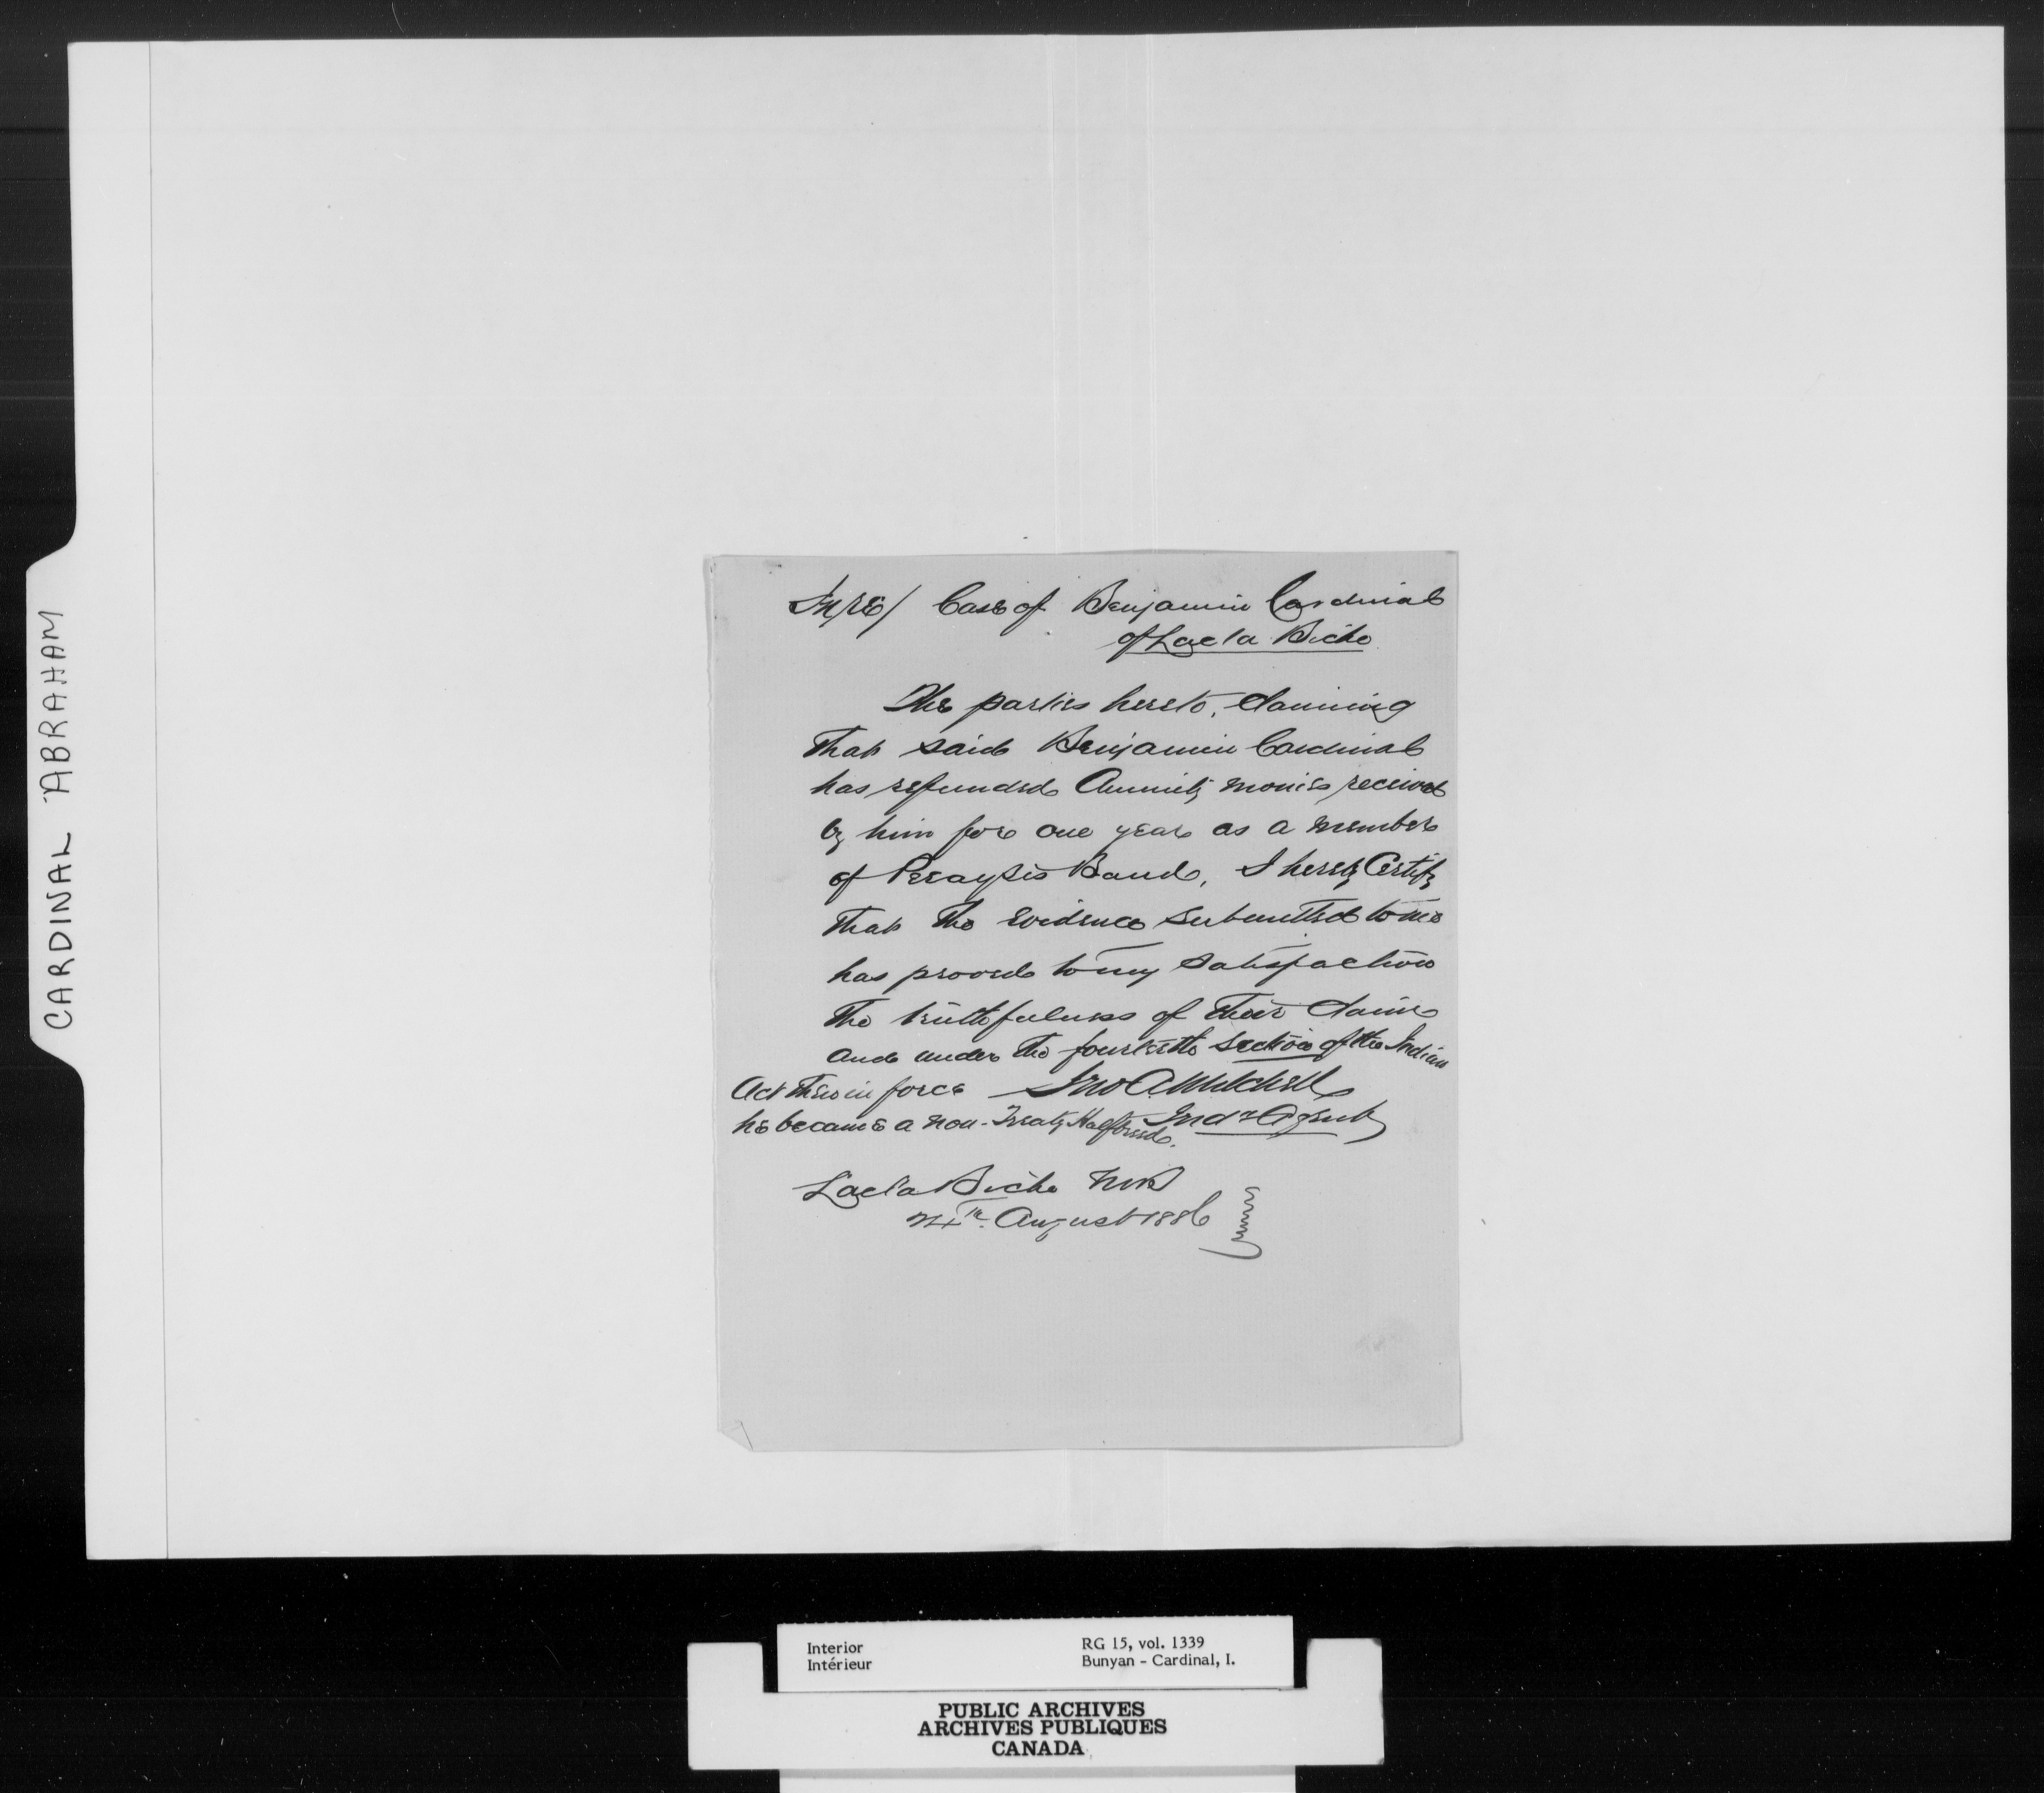 CARDINAL ABRAHAM
In re/ Case of Benjamin Cardinal
of Lac la Biche
The parties hereto, claiming
that said Benjamin Cardinal
has refunded Annuity monies received
by him for one year as a member
of Peeaysis Band, I hereby Certify
that the evidence submitted to me
has proved to my satisfaction
the truthfulness of their claim
and under the fourteenth section of the Indian
Act then in force Jno A Mitchell
he became a non-Treaty Halfbreed. Indn Agent
Lac la Biche NWT
24th August 1886
Interior
Intérieur
RG 15, vol. 1339
Bunyan - Cardinal, I.
PUBLIC ARCHIVES
ARCHIVES PUBLIQUES
CANADA